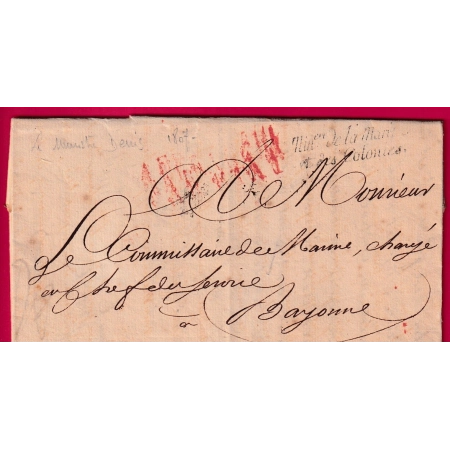 1807
Min.en de la Marine
et des Colonies.
A Monsieur
Le Commissaire de Marine, chargé
en Chef du Service
a Bayonne